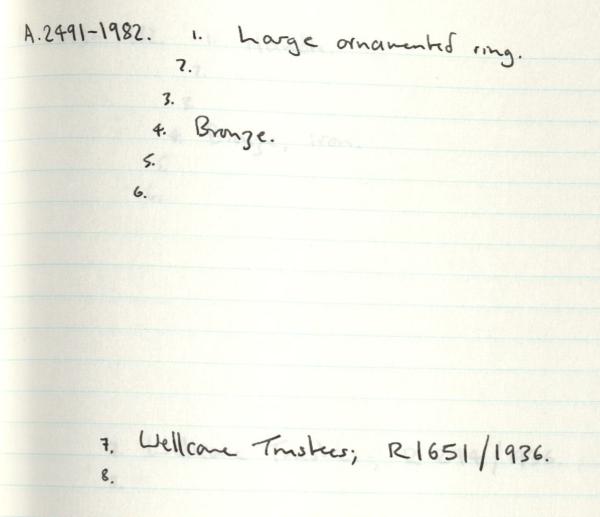 A.2491-1982. 1. Large ornamented ring.
2.
3.
4. Bronze.
5.
6.
7. Wellcome Trustees; R1651/1936.
8.